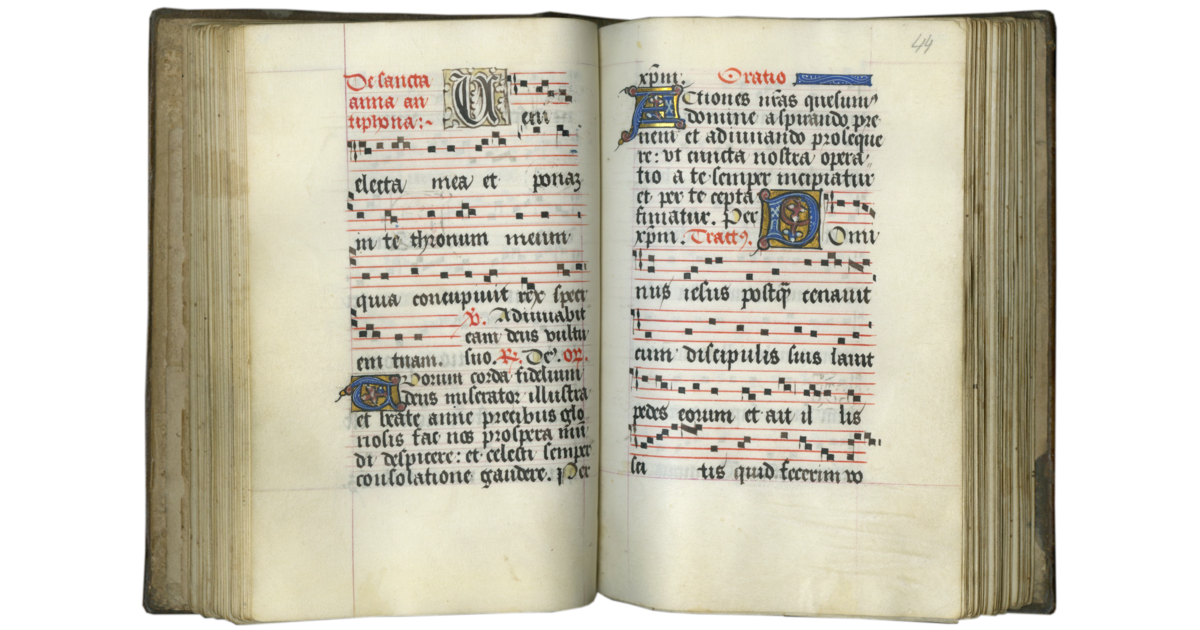 De sancta
anna an
tiphona:~
U
eni
electa mea et ponaz
in te thronum meum
quia concupiuit rex speci
em tuam.
V. Adiuuabit
eam deus vultu
suo. R. De'. or.
Corum corda fidelium
deus miserator illustra
et beate anne precibus glo
riosis fac nos prospera mū
di despicere: et celesti semper
consolatione gaudere. Per
44
xp̄m. Oratio
Actiones nr̄as quesum'
domine aspirando pre
ueni et adiuuando proseque
re: vt cuncta nostra opera
tio a te semper incipiatur
et per te cepta
finiatur. Per
xp̄m. Tract9.
D Omi
nus iesus postq̄ cenauit
cum discipulis suis lauit
pedes eorum et ait il lis
sci tis quid fecerim vo